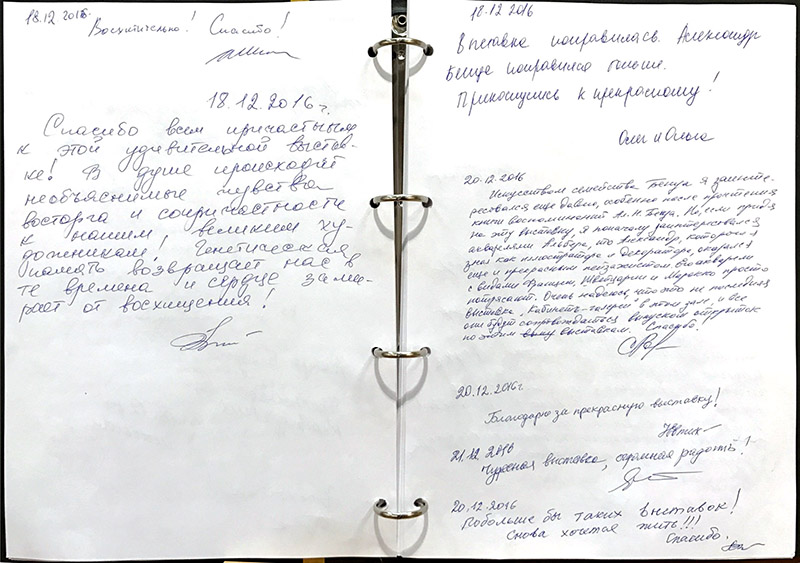 18.12.2016г.
Восхитительно! Спасибо!
18.12.2016г.
Спасибо всем причастным
к этой удивительной выстав-
ке! В душе происходят
необъяснимые чувства
восторга и сопричастности
к нашим великим ху-
дожникам! Генетическая
память возвращает нас в
те времена и сердце зами-
рает от восхищения!
18.12.2016
Выставка понравилась. Александр
Бенуа понравился больше.
Прикоснулись к прекрасному!
Олег и Ольга
20.12.2016
Искусством семейства Бенуа я заинте-
ресовался еще давно, особенно после прочтения
книги воспоминаний А. Н. Бенуа. Но, если придя
на эту выставку, я поначалу заинтересовался
акварелями Альбера, то Александр, которого я
знал как иллюстратора и декоратора, оказался
еще и прекрасным пейзажистом. Его акварели
с видами Франции, Швейцарии и Марокко просто
потрясают. Очень надеюсь, что это не последняя
выставка "Кабинета-галереи" в этом зале, и все
они будут сопровождаться выпуском открыток
по этим выставкам. Спасибо.
20.12.2016г
Благодарю за прекрасную выставку!
21.12.2016
Чудесная выставка, огромная радость!
20.12.2016
Побольше бы таких выставок!
Снова хочется жить!!!
Спасибо.